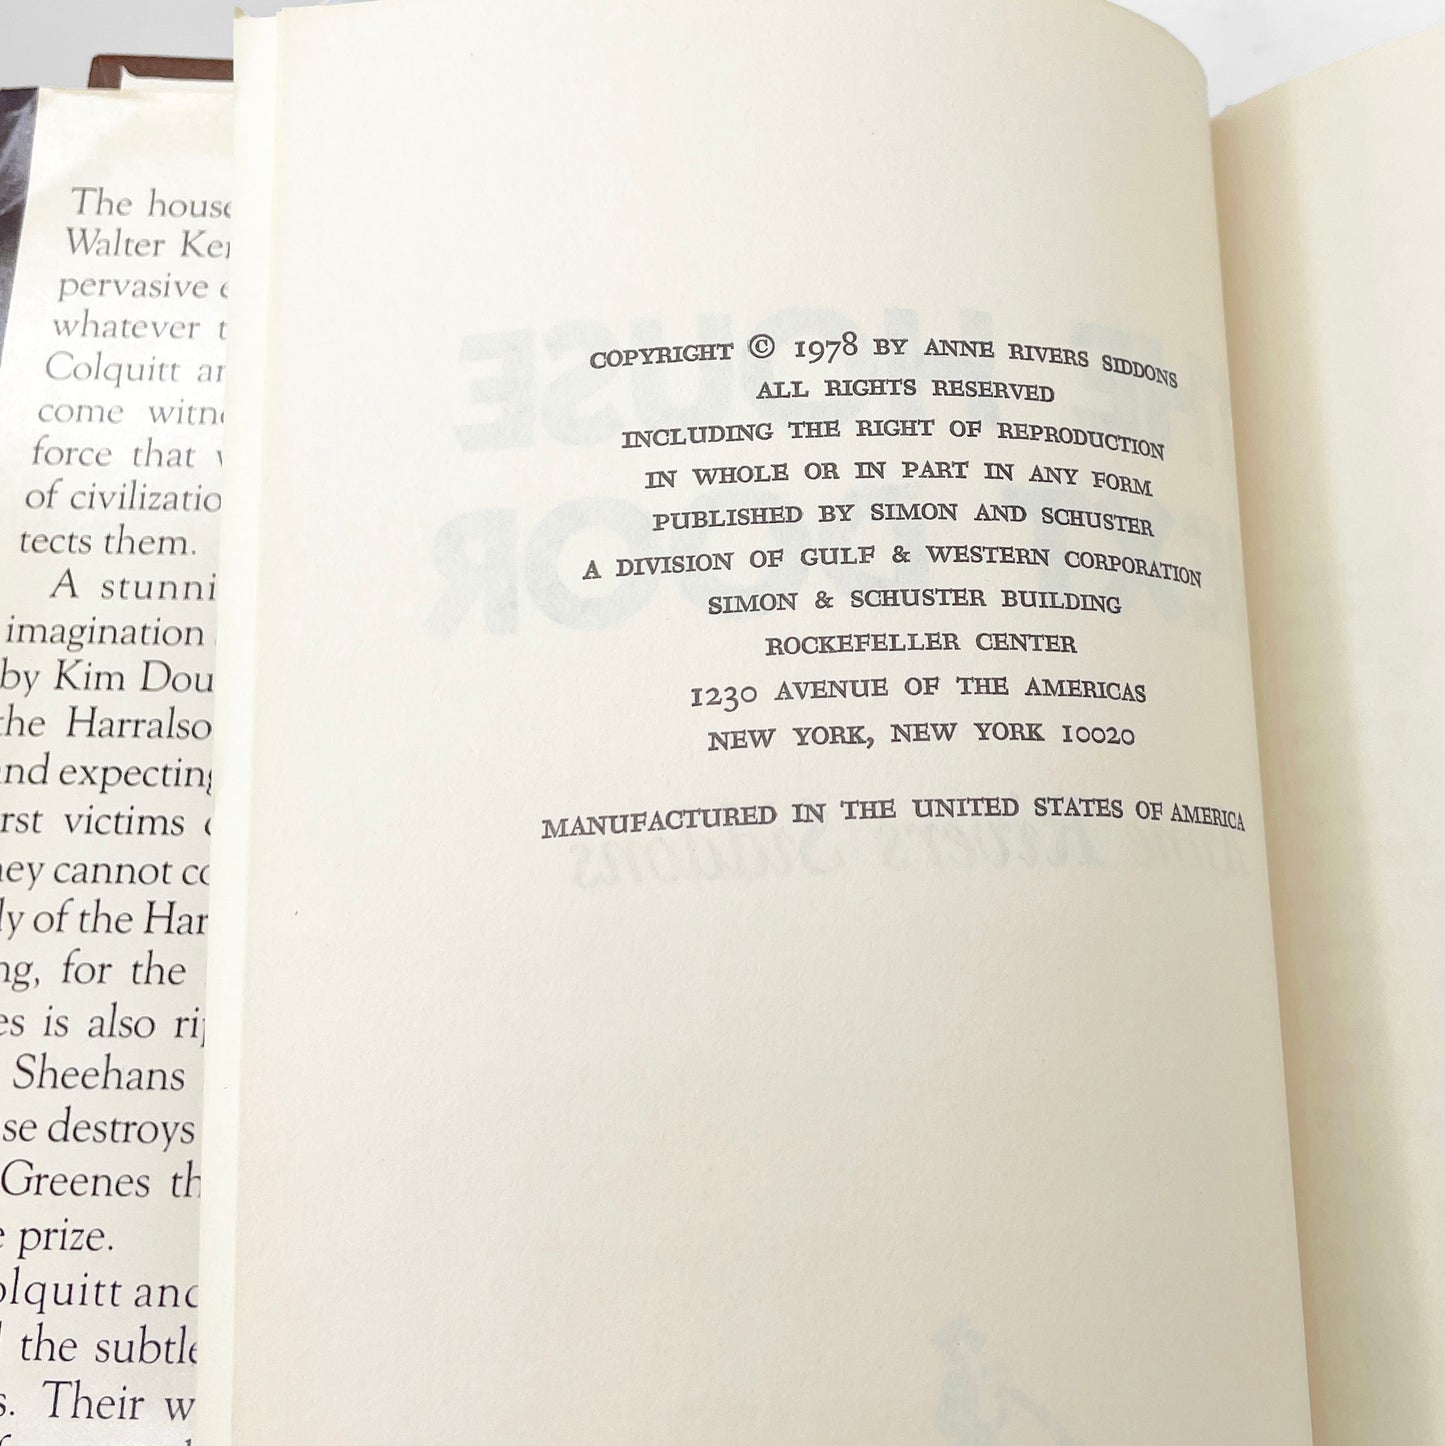 The house
Walter
pervasive
whatever
Colquitt
come
force that
of civilizatio
tects them.
A stunni
imagination
by Kim Dou
the Harralso
and expecting
victims
they cannot
of the Har
for the
is also
Sheehans
destroys
Greenes
prize.
Colquitt and
the subtle
Their
COPYRIGHT © 1978 BY ANNE RIVERS SIDDONS
ALL RIGHTS RESERVED
INCLUDING THE RIGHT OF REPRODUCTION
IN WHOLE OR IN PART IN ANY FORM
PUBLISHED BY SIMON AND SCHUSTER
A DIVISION OF GULF & WESTERN CORPORATION
SIMON & SCHUSTER BUILDING
ROCKEFELLER CENTER
1230 AVENUE OF THE AMERICAS
NEW YORK, NEW YORK 10020
MANUFACTURED IN THE UNITED STATES OF AMERICA